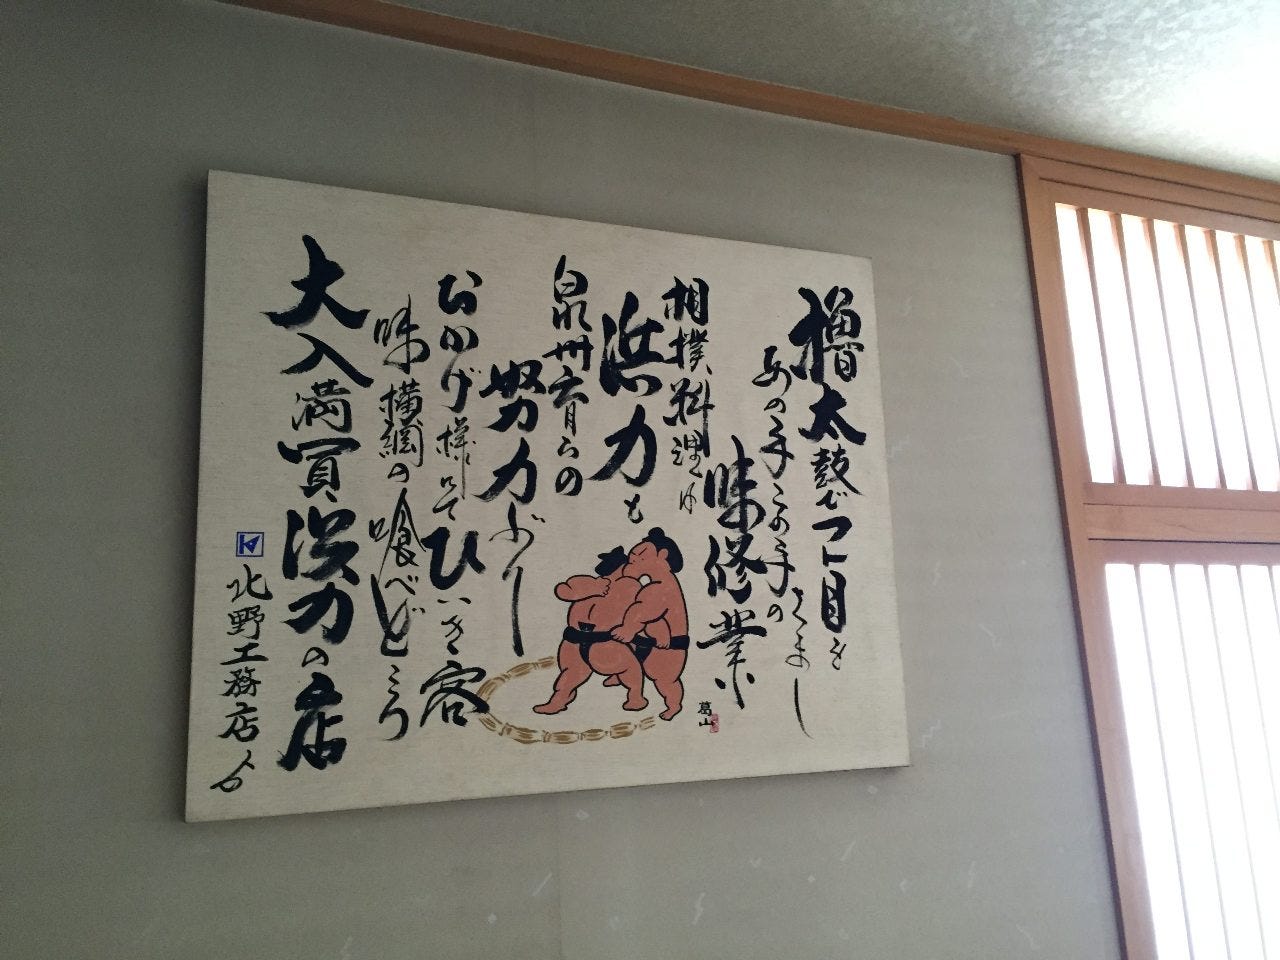 櫓太鼓で一つ目を
さまし
あの手この手の
味修業
相撲料理は
浜力も
泉州育ちの
努力ぶり
おかげ様にて
ひいき客
味横綱の
喰べどころ
大入満員浜力の店
北野工務店より
葛山